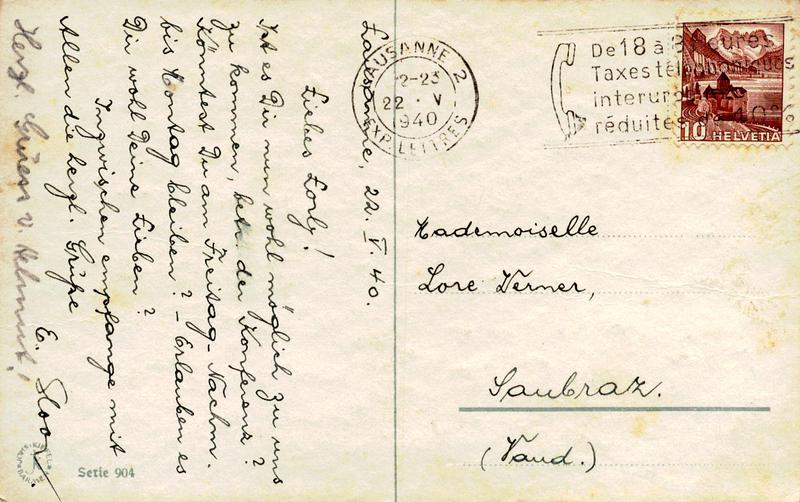 Lausanne, 22. V. 40.
Liebes Lorly!
Ist es Dir nun wohl möglich zu uns
zu kommen, betr. der Konferenz?
Könntest Du am Freitag-Nachm.
bis Montag bleiben? - Erlauben es
Dir wohl Deine Lieben?
Inzwischen empfange mit
Allen die herzl. Grüße
E. Floor.
Herzl. Grüsse v. Helmut!
Serie 904
LAUSANNE 2
2-23
22 . V
1940
EXP. LETTRES
De 18 à 8 heures
Taxes téléphoniques
interur
réduites de 40%
10 HELVETIA
Mademoiselle
Lore Verner,
Saubraz.
(Vaud.)